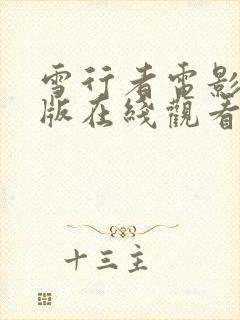 雪行者電影
版在綫觀看
十三主